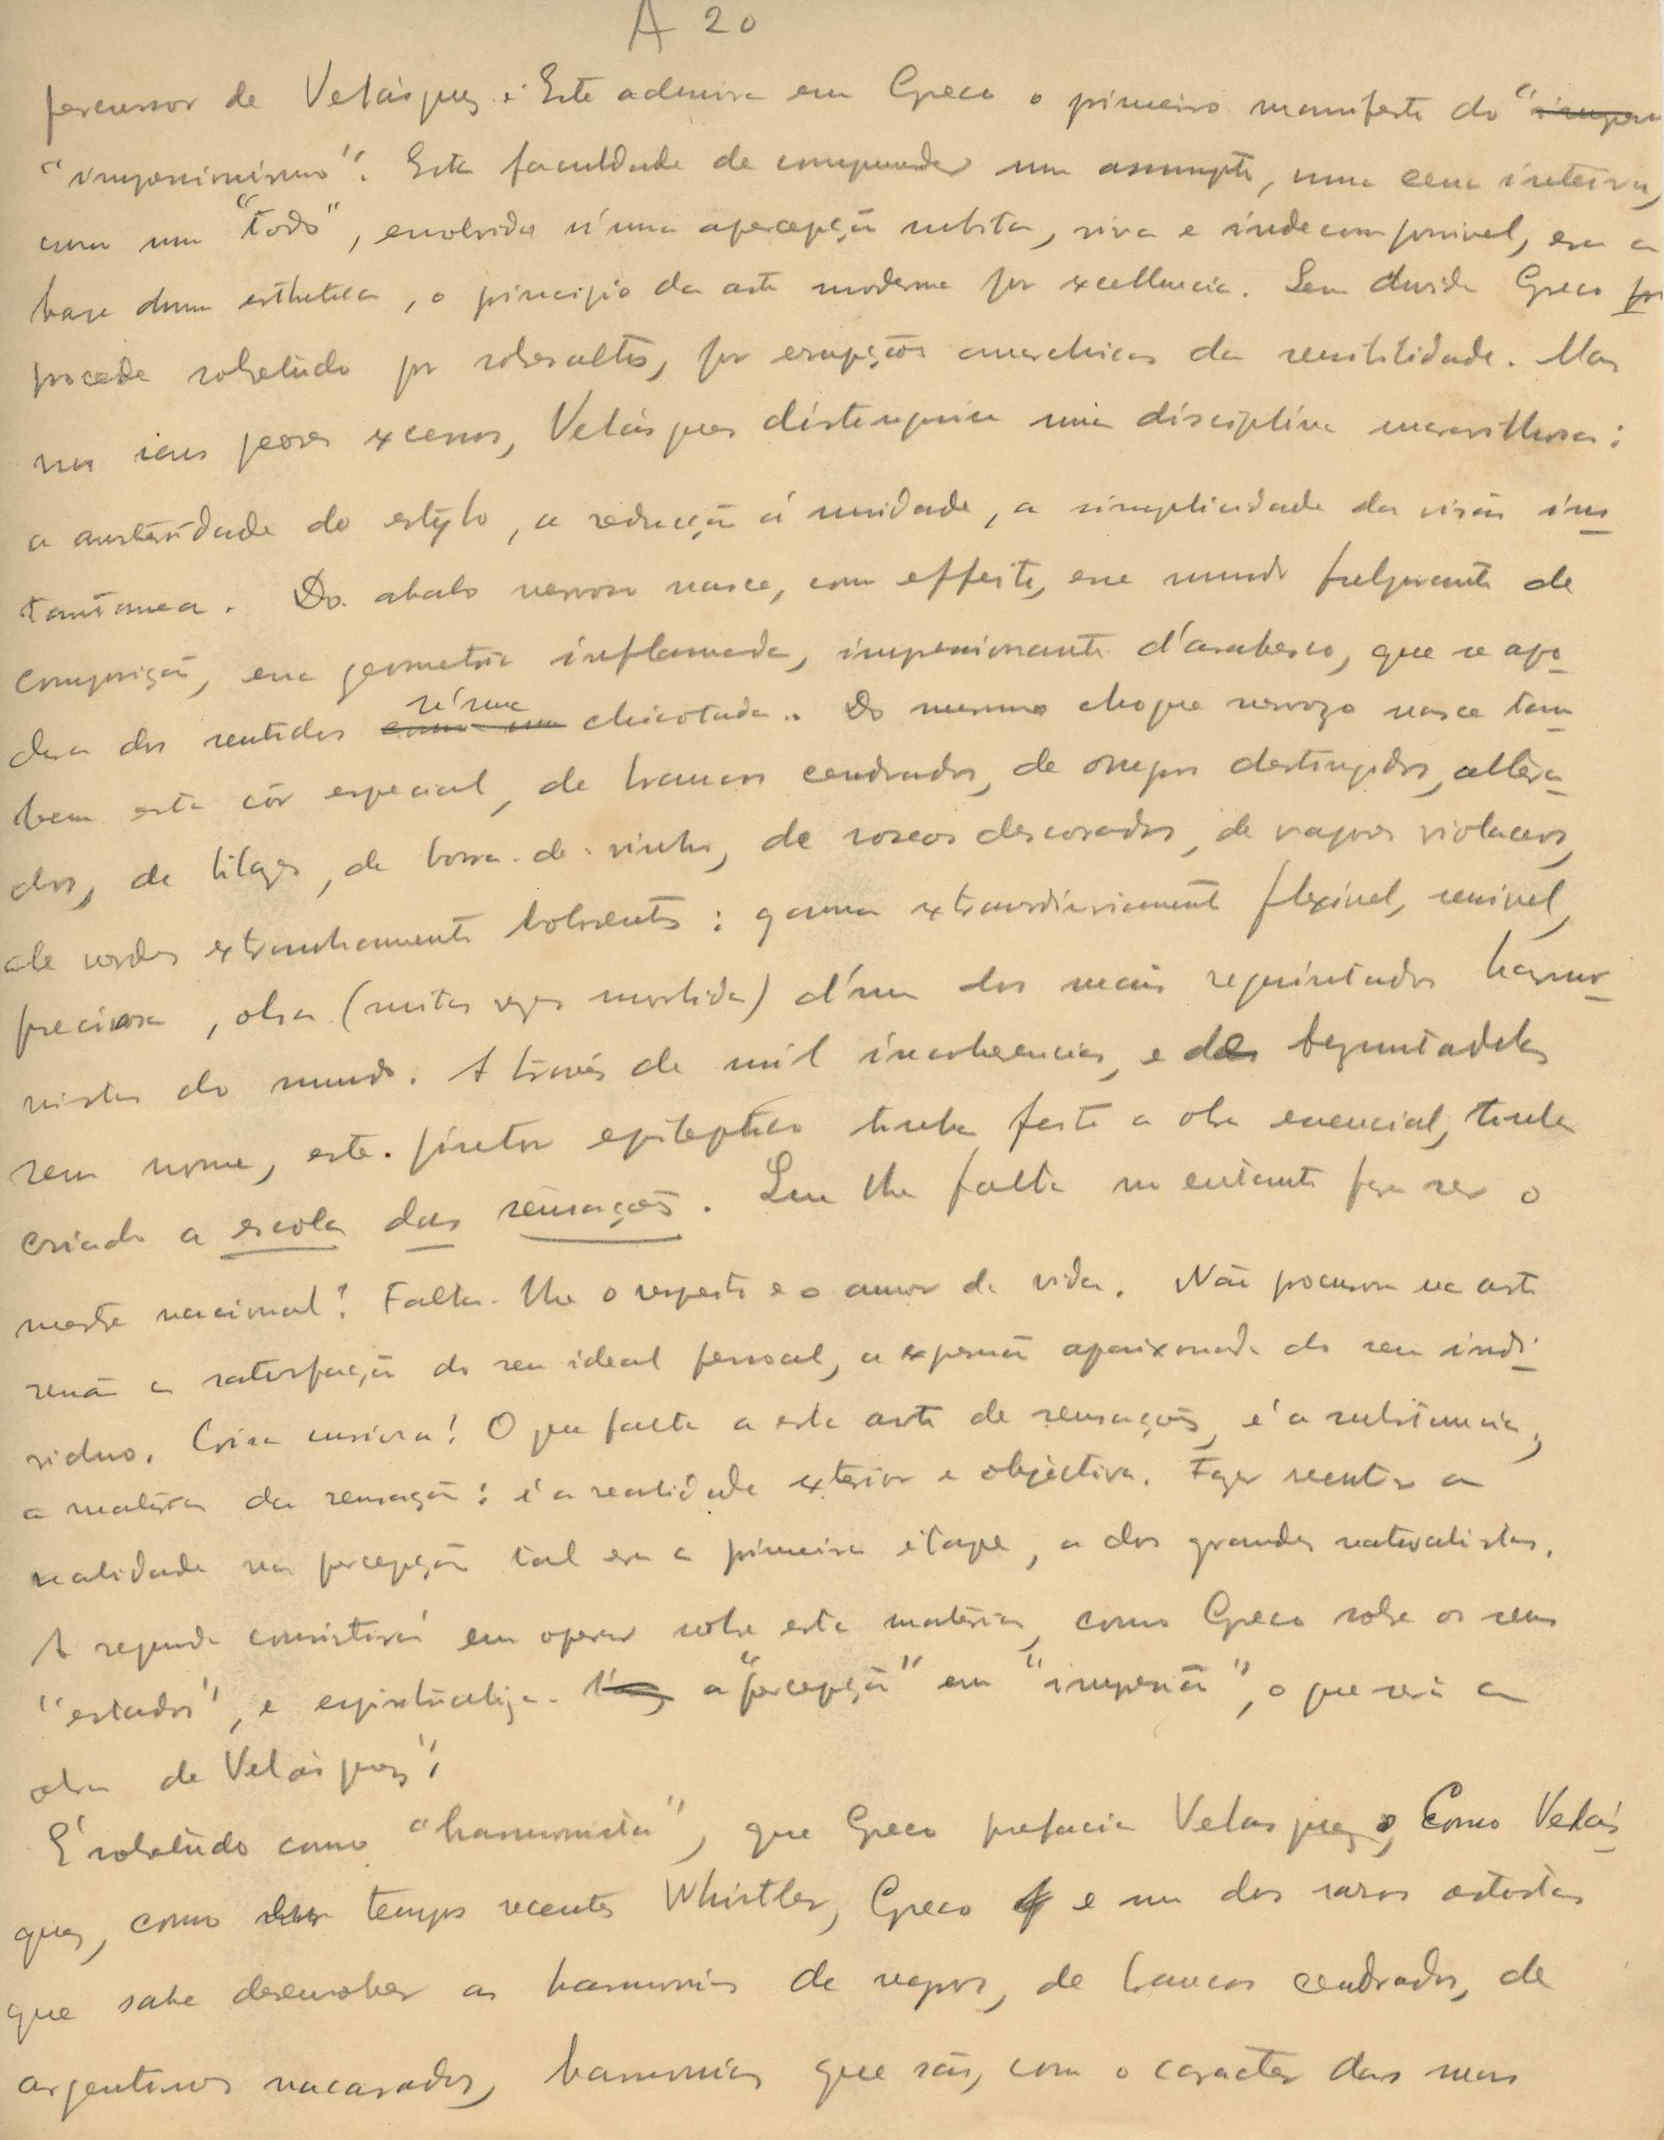 A 20
percursor de Velásquez. Este admira em Greco o primeiro manifesto do "
"impressionismo". Esta faculdade de comprender um assumpto, uma cena inteira,
como um "todo", envolvida n'uma apercepção subita, viva e indecomponivel, era a
base duma esthetica, o principio da arte moderna por excellencia. Sem duvida Greco
procede sobretudo por sobresaltos, por erupções anarchicas da sensibilidade. Mas
nos seus peores excessos, Velásques distinguia uma disciplina maravilhosa:
a austeridade do estylo, a reducção á unidade, a simplicidade da visão ins
tantanea. Do abalo nervoso nasce, com effeito, esse mundo fulgurante de
composição, essa geometria inflamada, impressionante d'arabesco, que se apo
dera dos sentidos n'uma chicotada. Do mesmo choque nervozo nasce tam
bem esta côr especial, de brancos cendrados, de negros destingidos, altera
dos, de lilazes, de borra-de-vinho, de roseos descorados, de vapores violaceos,
de verdes extranhamente dolentes: gamma extraordinariamente flexivel, sensivel,
preciosa, obra (muitas vezes morbida) d'um dos mais requintados harmo
nistas do mundo. A travéz de mil incoherencias, e de
sem nome, este pintor epileptico tinha feito a obra essencial, tinha
criado a escola das sensações. Que lhe falta no entanto para ser o
mestre nacional? Falta-lhe o respeito e o amor da vida. Não procurou na arte
senão a satisfação do seu ideal pessoal, a expressão apaixonada do seu indi
viduo. Coisa curiosa! O que falta a esta arte de sensações, é a substancia,
a materia da sensação: é a realidade exterior e objectiva. Fazer sentir a
realidade na percepção tal era a primeira étape, a dos grandes naturalistas.
A segunda consistirá em operar sobre esta materia, como Greco sobre os seus
"estados", e espiritualiza- a "percepção" em "impressão", o que será a
obra de Velásquez".
É sobretudo como "harmonista", que Greco prefacia Velasquez, Como Velás
quez, como tempos recentes Whistler, Greco e um dos raros artistas
que sabe desenvolver as harmonias de negros, de brancos cendrados, de
argentinos nacarados, harmonias que são, com o caracter das suas